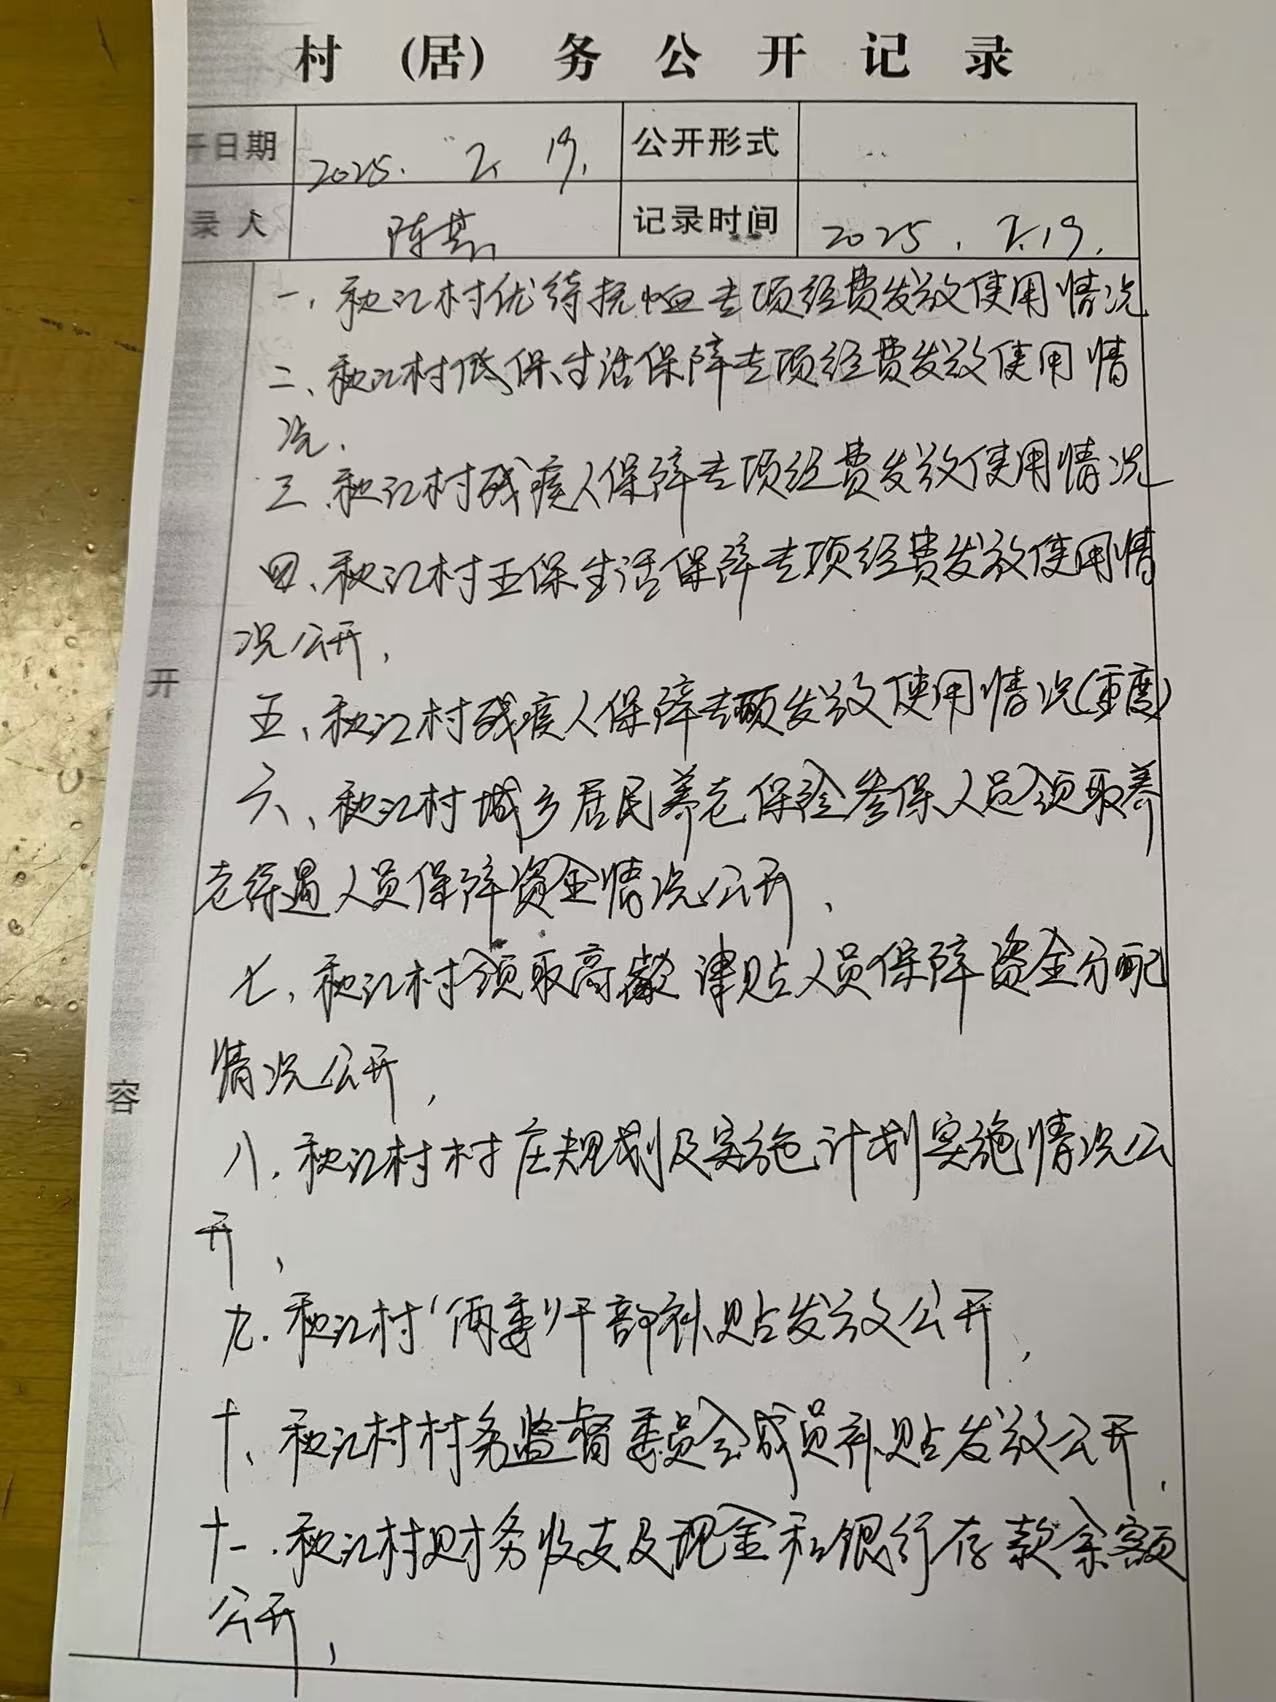 村（居）务公开记录
开日期 2025. 2. 19. 公开形式
录人 陈 记录时间 2025. 2.19.
一、秋江村优待抚恤专项经费发放使用情况
二、秋江村低保生活保障专项经费发放使用情
况.
三、秋江村残疾人保障专项经费发放使用情况
四、秋江村五保生活保障专项经费发放使用情
况公开,
开
五、秋江村残疾人保障专项发放使用情况(重度)
六、秋江村城乡居民养老保险参保人员领取养
老待遇人员保障资金情况公开、
七、秋江村领取高龄津贴人员保障资金分配
情况公开,
容
八、秋江村村庄规划及实施计划实施情况公
开,
九.秋江村“两委”干部补贴发放公开,
十、秋江村村务监督委员会成员补贴发放公开.
十一.秋江村财务收支及现金和银行存款余额
公开,